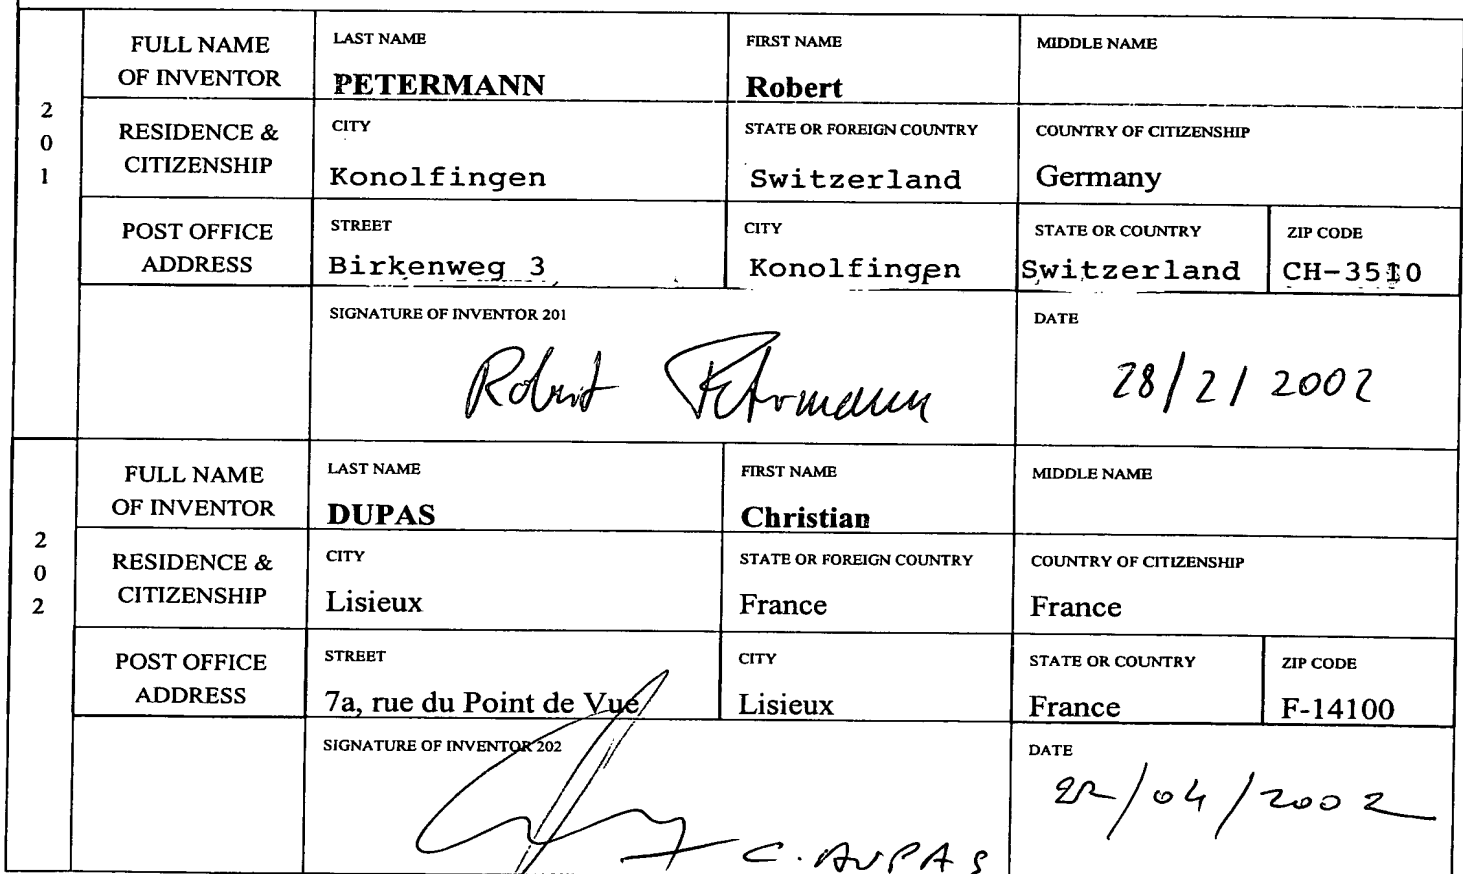 201
FULL NAME OF INVENTOR
LAST NAME
PETERMANN
FIRST NAME
Robert
MIDDLE NAME
RESIDENCE & CITIZENSHIP
CITY
Konolfingen
STATE OR FOREIGN COUNTRY
Switzerland
COUNTRY OF CITIZENSHIP
Germany
POST OFFICE ADDRESS
STREET
Birkenweg 3
CITY
Konolfingen
STATE OR COUNTRY
Switzerland
ZIP CODE
CH-3510
SIGNATURE OF INVENTOR 201
Robert Petermann
DATE
28/2/2002
202
FULL NAME OF INVENTOR
LAST NAME
DUPAS
FIRST NAME
Christian
MIDDLE NAME
RESIDENCE & CITIZENSHIP
CITY
Lisieux
STATE OR FOREIGN COUNTRY
France
COUNTRY OF CITIZENSHIP
France
POST OFFICE ADDRESS
STREET
7a, rue du Point de Vue
CITY
Lisieux
STATE OR COUNTRY
France
ZIP CODE
F-14100
SIGNATURE OF INVENTOR 202
C. DUPAS
DATE
22/04/2002